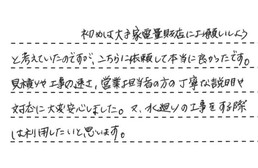 初めは大手家電量販店にお願いしよう
と考えていたのですが、こちらに依頼して本当に良かったです。
見積りや工事の速さ、営業担当者の方の丁寧な説明や
対応に大変安心しました。又、水廻りの工事をする際
は利用したいと思います。